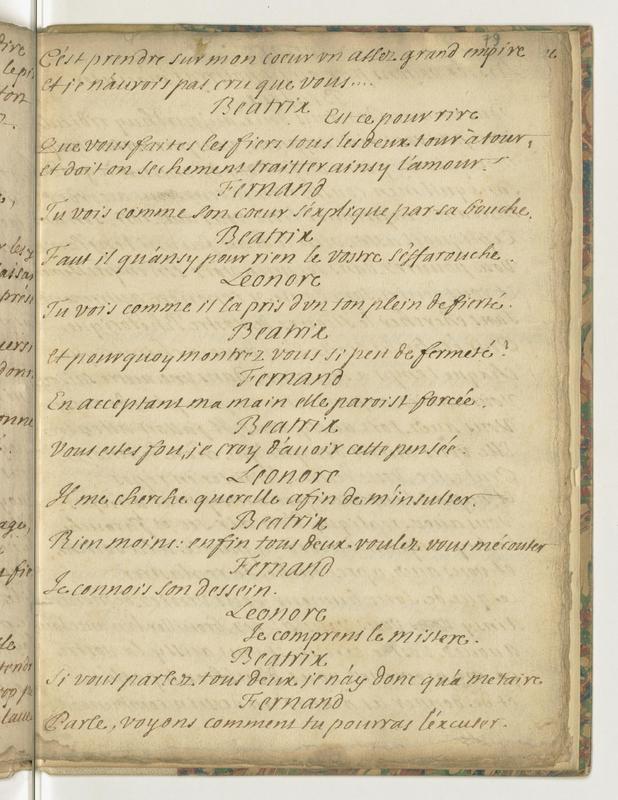 79
C'est prendre sur mon coeur vn assez grand empire
et je n'aurois pas cru que vous....
Beatrix
Est ce pour rire
Que vous faites les fiers tous les deux tour à tour,
et doit on sechement traitter ainsy l'amour.
Fernand
Tu vois comme son coeur s'explique par sa bouche.
Beatrix
Faut il qu'ansy pour rien le vostre s'effarouche.
Leonore
Tu vois comme il la pris d'vn ton plein de fierté.
Beatrix
et pourquoy montrez vous si peu de fermeté?
Fernand
En acceptant ma main elle paroist forcée.
Beatrix
Vous estes fou, je croy d'auoir cette pensée.
Leonore
Il me cherche querelle afin de m'insulter.
Beatrix
Rien moins: enfin tous deux voulez vous m'ecouter
Fernand
Je connois son dessein.
Leonore
Je comprens le mistere.
Beatrix
Si vous parlez tous deux je n'ay donc qu'a me taire
Fernand
Parle, voyons comment tu pourras l'excuser.